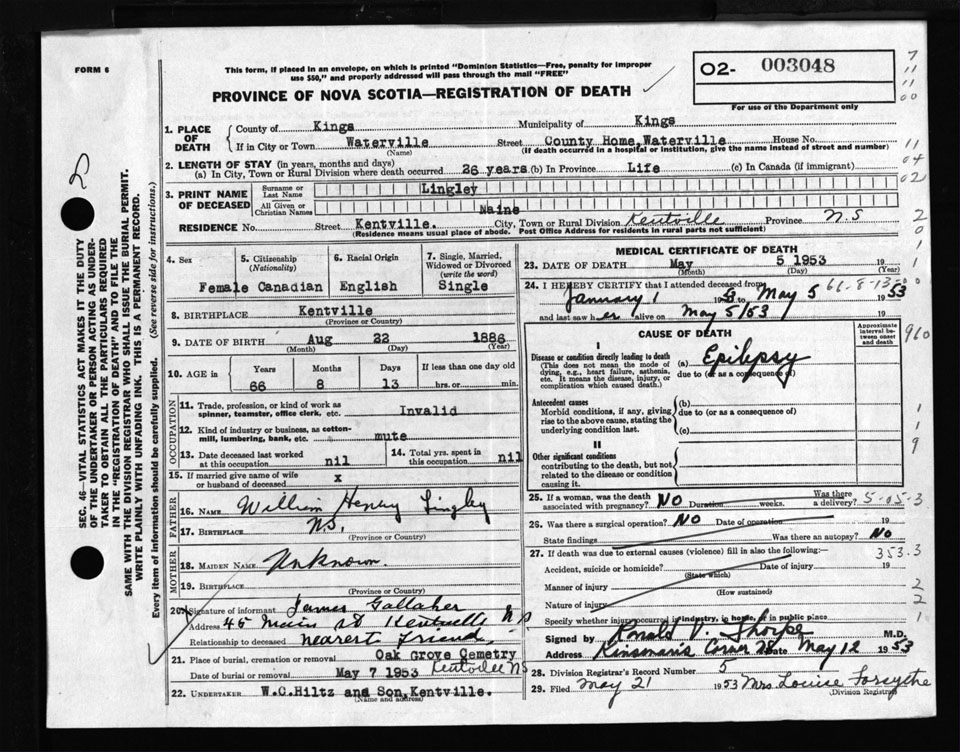 FORM 6
This form, if placed in an envelope, on which is printed "Dominion Statistics—Free, penalty for improper
use $50," and properly addressed will pass through the mail "FREE"
PROVINCE OF NOVA SCOTIA—REGISTRATION OF DEATH
02- 003048
For use of the Department only
1. PLACE OF DEATH
County of Kings Municipality of Kings
If in City or Town Waterville Street County Home, Waterville House No.
(Name) (If death occurred in a hospital or institution, give the name instead of street and number)
2. LENGTH OF STAY (in years, months and days)
(a) In City, Town or Rural Division where death occurred 26 years (b) In Province Life (c) In Canada (if immigrant)
3. PRINT NAME OF DECEASED
Surname or Last Name Lingley
All Given or Christian Names Naine
RESIDENCE No. Street Kentville. City, Town or Rural Division Kentville Province N.S
(Residence means usual place of abode. Post Office Address for residents in rural parts not sufficient)
4. Sex
Female
5. Citizenship
(Nationality)
Canadian
6. Racial Origin
English
7. Single, Married,
Widowed or Divorced
(write the word)
Single
8. BIRTHPLACE Kentville
(Province or Country)
9. DATE OF BIRTH Aug 22 1886
(Month) (Day) (Year)
10. AGE in Years Months Days If less than one day old
66 8 13 hrs. or min.
OCCUPATION
11. Trade, profession, or kind of work as
spinner, teamster, office clerk, etc. Invalid
12. Kind of industry or business, as cotton-
mill, lumbering, bank, etc. mute
13. Date deceased last worked
at this occupation nil
14. Total yrs. spent in
this occupation nil
15. If married give name of wife
or husband of deceased x
FATHER
16. NAME William Henry Lingley
17. BIRTHPLACE N.S.
(Province or Country)
MOTHER
18. MAIDEN NAME Unknown.
19. BIRTHPLACE
(Province or Country)
20. Signature of informant James Gallaher
Address 45 Main St Kentville N S
Relationship to deceased nearest Friend
21. Place of burial, cremation or removal Oak Grove Cemetry
Kentville NS
Date of burial or removal May 7 1953
22. UNDERTAKER W.C.Hiltz and Son, Kentville.
(Name and address)
MEDICAL CERTIFICATE OF DEATH
23. DATE OF DEATH May 5 1953
(Month) (Day) (Year)
66-8-13
24. I HEREBY CERTIFY that I attended deceased from
January 1 19 to May 5 1953
and last saw her alive on May 5/53 19
CAUSE OF DEATH
Approximate
interval between
onset
and death
I
Disease or condition directly leading to death
(This does not mean the mode of
dying, e.g., heart failure, asthenia,
etc. It means the disease, injury, or
complication which caused death.)
(a) Epilepsy
due to (or as a consequence of)
Antecedent causes
Morbid conditions, if any, giving
rise to the above cause, stating the
underlying condition last.
(b)
due to (or as a consequence of)
(c)
II
Other significant conditions
contributing to the death, but not
related to the disease or condition
causing it.
25. If a woman, was the death
associated with pregnancy? NO Duration weeks. Was there
a delivery? 5-05-3
26. Was there a surgical operation? NO Date of operation 19
State findings Was there an autopsy? No
27. If death was due to external causes (violence) fill in also the following:— 353.3
Accident, suicide or homicide? Date of injury 19
(State which)
Manner of injury
(How sustained)
Nature of injury
Specify whether injury occurred in industry, in home, or in public place
Signed by Ronald V. Thorpe M.D.
Address Kinsman's Corner Date May 12 1953
28. Division Registrar's Record Number 5
29. Filed May 21 1953 Mrs Louise Forsythe
Division Registrar
SEC. 46—VITAL STATISTICS ACT MAKES IT THE DUTY
OF THE UNDERTAKER OR PERSON ACTING AS UNDER-
TAKER TO OBTAIN ALL THE PARTICULARS REQUIRED
IN THE "REGISTRATION OF DEATH" AND TO FILE THE
SAME WITH THE DIVISION REGISTRAR WHO SHALL ISSUE THE BURIAL PERMIT.
WRITE PLAINLY WITH UNFADING INK. THIS IS A PERMANENT RECORD.
Every item of information should be carefully supplied. (See reverse side for instructions.)
960